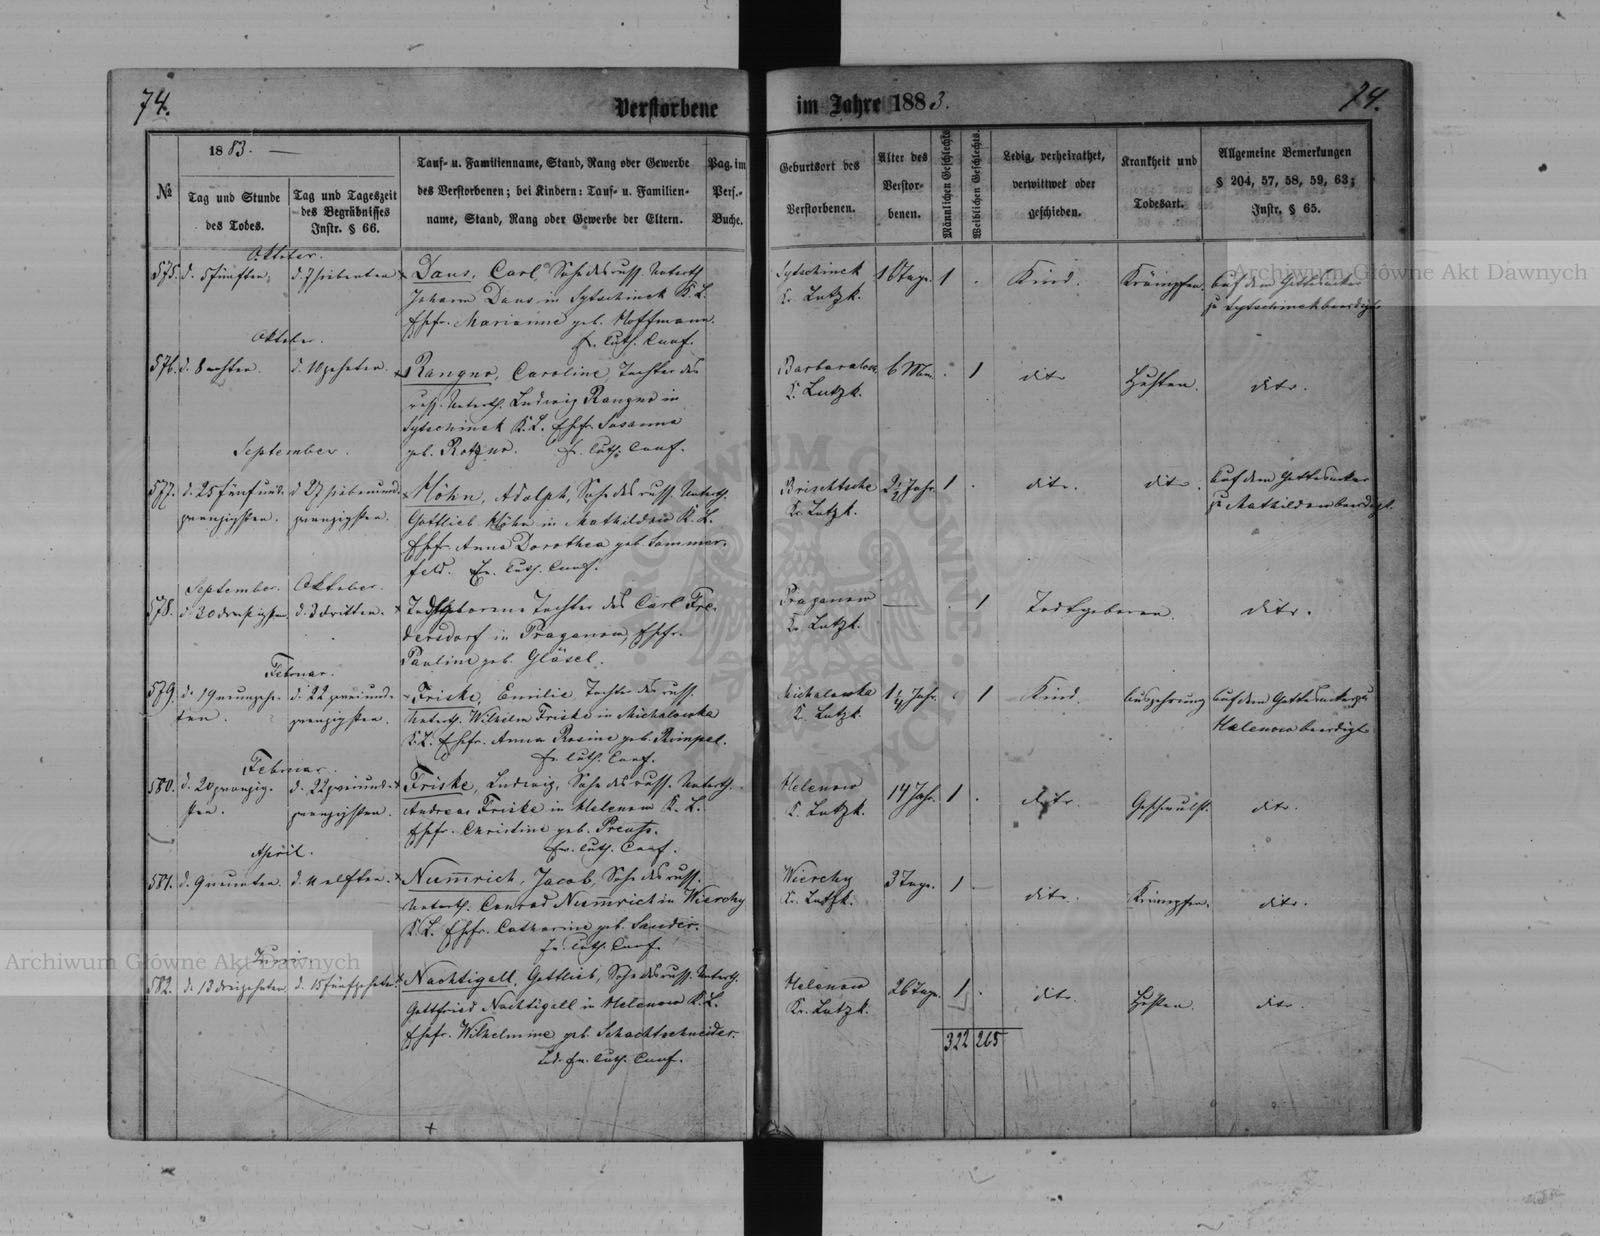 74.
Verstorbene
im Jahre 1883.
74.
№
1883. —
Tag und Stunde
des Todes.
Tag und Tageszeit
des Begräbnisses
Instr. § 66.
Tauf- u. Familienname, Stand, Rang oder Gewerbe
des Verstorbenen; bei Kindern: Tauf- u. Familien-
name, Stand, Rang oder Gewerbe der Eltern.
Pag. im
Pers.-
Buche.
Geburtsort des
Verstorbenen.
Alter des
Verstor-
benen.
Männlichen Geschlechts.
Weiblichen Geschlechts.
Ledig, verheirathet,
verwittwet oder
geschieden.
Krankheit und
Todesart.
Allgemeine Bemerkungen
§ 204, 57, 58, 59, 63;
Instr. § 65.
Oktober.
575. d. 5 fünften. d. 7 siebenten × Daus, Carl, Sohn des russ. Unterth.
Johann Daus in Sytschinek K. L.
Ehefr. Marianne geb. Hoffmann.
Ev. luth. Conf.
Sytschinek
Kr. Lutzk.
1 .
Kind.
Krämpfen.
auf dem Gottesacker
zu Sytschinek beerdigt
Oktober.
576. d. 8 achten. d. 10 zehnten. × Rangno, Caroline Tochter des
russ. Unterth. Ludwig Rangno in
Sytschinek K. L. Ehefr. Susanna
geb. Rotzno. Ev. luth. Conf.
K. Lutzk.
6 Mon.
. 1
dito
Husten.
dito.
September.
577. d. 25 fünfund- d. 27 siebenund-
zwanzigsten. zwanzigsten.
× Höhn, Adolph, Sohn des russ. Unterth.
Gottlieb Höhn in Mathildow K. L.
Ehefr. Anna Dorothea geb. Sommer-
feld. Ev. luth. Conf.
Brischtsche
Kr. Lutzk.
2½ Jahr.
1 .
dito.
dito.
auf dem Gottesacker
zu Mathildow beerdigt.
September. Oktober.
578. d. 30 dreißigsten. d. 3 dritten. × Todtgeborene Tochter des Carl Fre-
dersdorf in Praganow, Ehefr.
Pauline geb. Gläsel.
Praganow
Kr. Lutzk.
—
. 1
Todtgeboren.
dito.
Februar.
579. d. 19 neunzehn- d. 22 zweiund-
ten. zwanzigsten.
Friske, Emilie Tochter des russ.
Unterth. Wilhelm Friske in Michalowka
K. L. Ehefr. Anna Rosine geb. Rimpel.
Ev. luth. Conf.
Michalowka
K. Lutzk.
1¼ Jahr.
. 1
Kind.
Auszehrung
auf dem Gottesacker zu
Helenow beerdigt
Februar.
580. d. 20 zwanzig- d. 22 zweiund-
sten. zwanzigsten.
× Friske, Ludwig, Sohn des russ. Unterth.
Andreas Friske in Helenow K. L.
Ehefr. Christine geb. Preuss.
Ev. luth. Conf.
Helenow
K. Lutzk.
14 Jahr.
1 .
dito.
Geschwulst.
dito.
April.
581. d. 9 neunten. d. 11 elften. × Numrich, Jacob, Sohn des russ.
Unterth. Conrad Numrich in Wierchy
K. L. Ehefr. Catharine geb. Sauder.
Ev. luth. Conf.
Wierchy
Kr. Lutzk.
3 Tage.
1 .
dito.
Krämpfen.
dito.
582. d. 13 dreizehnten. d. 15 fünfzehnten. × Nachtigall, Gottlieb, Sohn des russ. Unterth.
Gottfried Nachtigall in Helenow K. L.
Ehefr. Wilhelmine geb. Schachtschneider.
Ev. luth. Conf.
Helenow
Kr. Lutzk.
26 Tage.
1 .
dito.
Husten.
dito.
322 265
Archiwum Główne Akt Dawnych
Archiwum Główne Akt Dawnych
ARCHIWUM GŁÓWNE AKT DAWNYCH